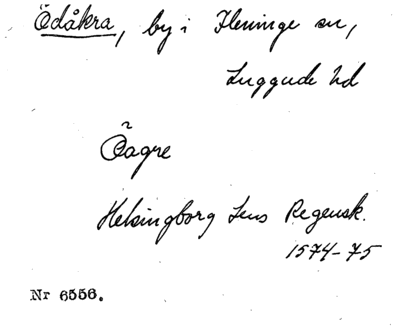 Ödåkra, by i Fleninge sn,
Luggude hd
Õagre
Helsingborg Lens Regensk.
1574-75
Nr 6556.